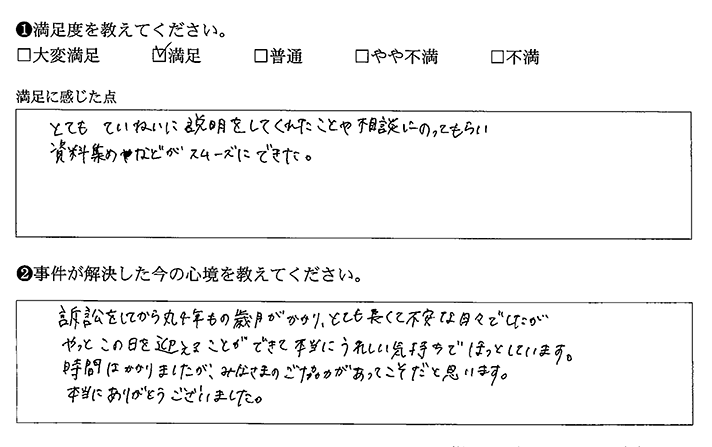 ❶満足度を教えてください。
□大変満足 ☑満足 □普通 □やや不満 □不満
満足に感じた点
とても ていねいに 説明をしてくれたことや相談にのってもらい
資料集めなどがスムーズにできた。
❷事件が解決した今の心境を教えてください。
訴訟をしてから丸4年もの歳月がかかり、とても長くて不安な日々でしたが
やっとこの日を迎えることができて本当にうれしい気持ちでほっとしています。
時間はかかりましたが、みなさまのご協力があってこそだと思います。
本当にありがとうございました。